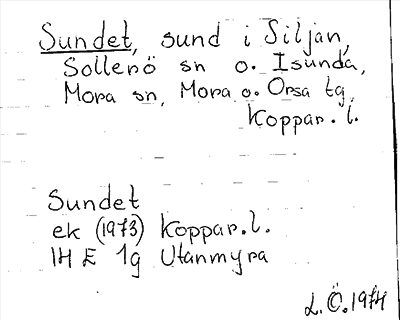 Sundet, sund i Siljan,
Sollerö sn o. Isunda,
Mora sn, Mora o. Orsa tg,
Koppar. l.
Sundet
ek (1973) Koppar. l.
14 E 1g Utanmyra
L.Ö. 1974